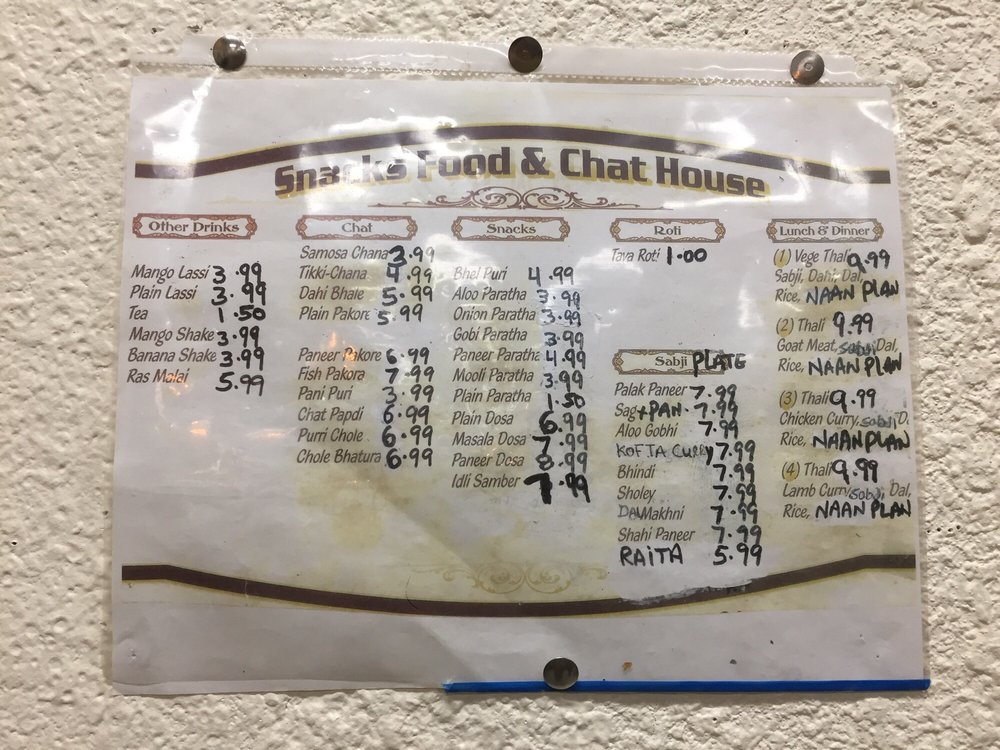 Snacks Food & Chat House
Other Drinks
Mango Lassi 3.99
Plain Lassi 3.99
Tea 1.50
Mango Shake 3.99
Banana Shake 3.99
Ras Malai 5.99
Chat
Samosa Chana 3.99
Tikki-Chana 4.99
Dahi Bhale 5.99
Plain Pakore 5.99
Paneer Pakore 6.99
Fish Pakora 7.99
Pani Puri 3.99
Chat Papdi 6.99
Purri Chole 6.99
Chole Bhatura 6.99
Snacks
Bhel Puri 4.99
Aloo Paratha 3.99
Onion Paratha 3.99
Gobi Paratha 3.99
Paneer Paratha 4.99
Mooli Paratha 3.99
Plain Paratha 1.50
Plain Dosa 6.99
Masala Dosa 7.99
Paneer Dosa 8.99
Idli Samber 7.99
Roti
Tava Roti 1.00
Sabji PLATE
Palak Paneer 7.99
Sag+PAN. 7.99
Aloo Gobhi 7.99
KOFTA CURRY 7.99
Bhindi 7.99
Sholey 7.99
DALMakhni 7.99
Shahi Paneer 7.99
RAITA 5.99
Lunch & Dinner
(1) Vege Thali 9.99
Sabji, Dahi, Dal,
Rice, NAAN PLAN
(2) Thali 9.99
Goat Meat, Sabji Dal,
Rice, NAAN PLAN
(3) Thali 9.99
Chicken Curry, Sabji D.
Rice, NAAN PLAN
(4) Thali 9.99
Lamb Curry, Sabji, Dal,
Rice, NAAN PLAN